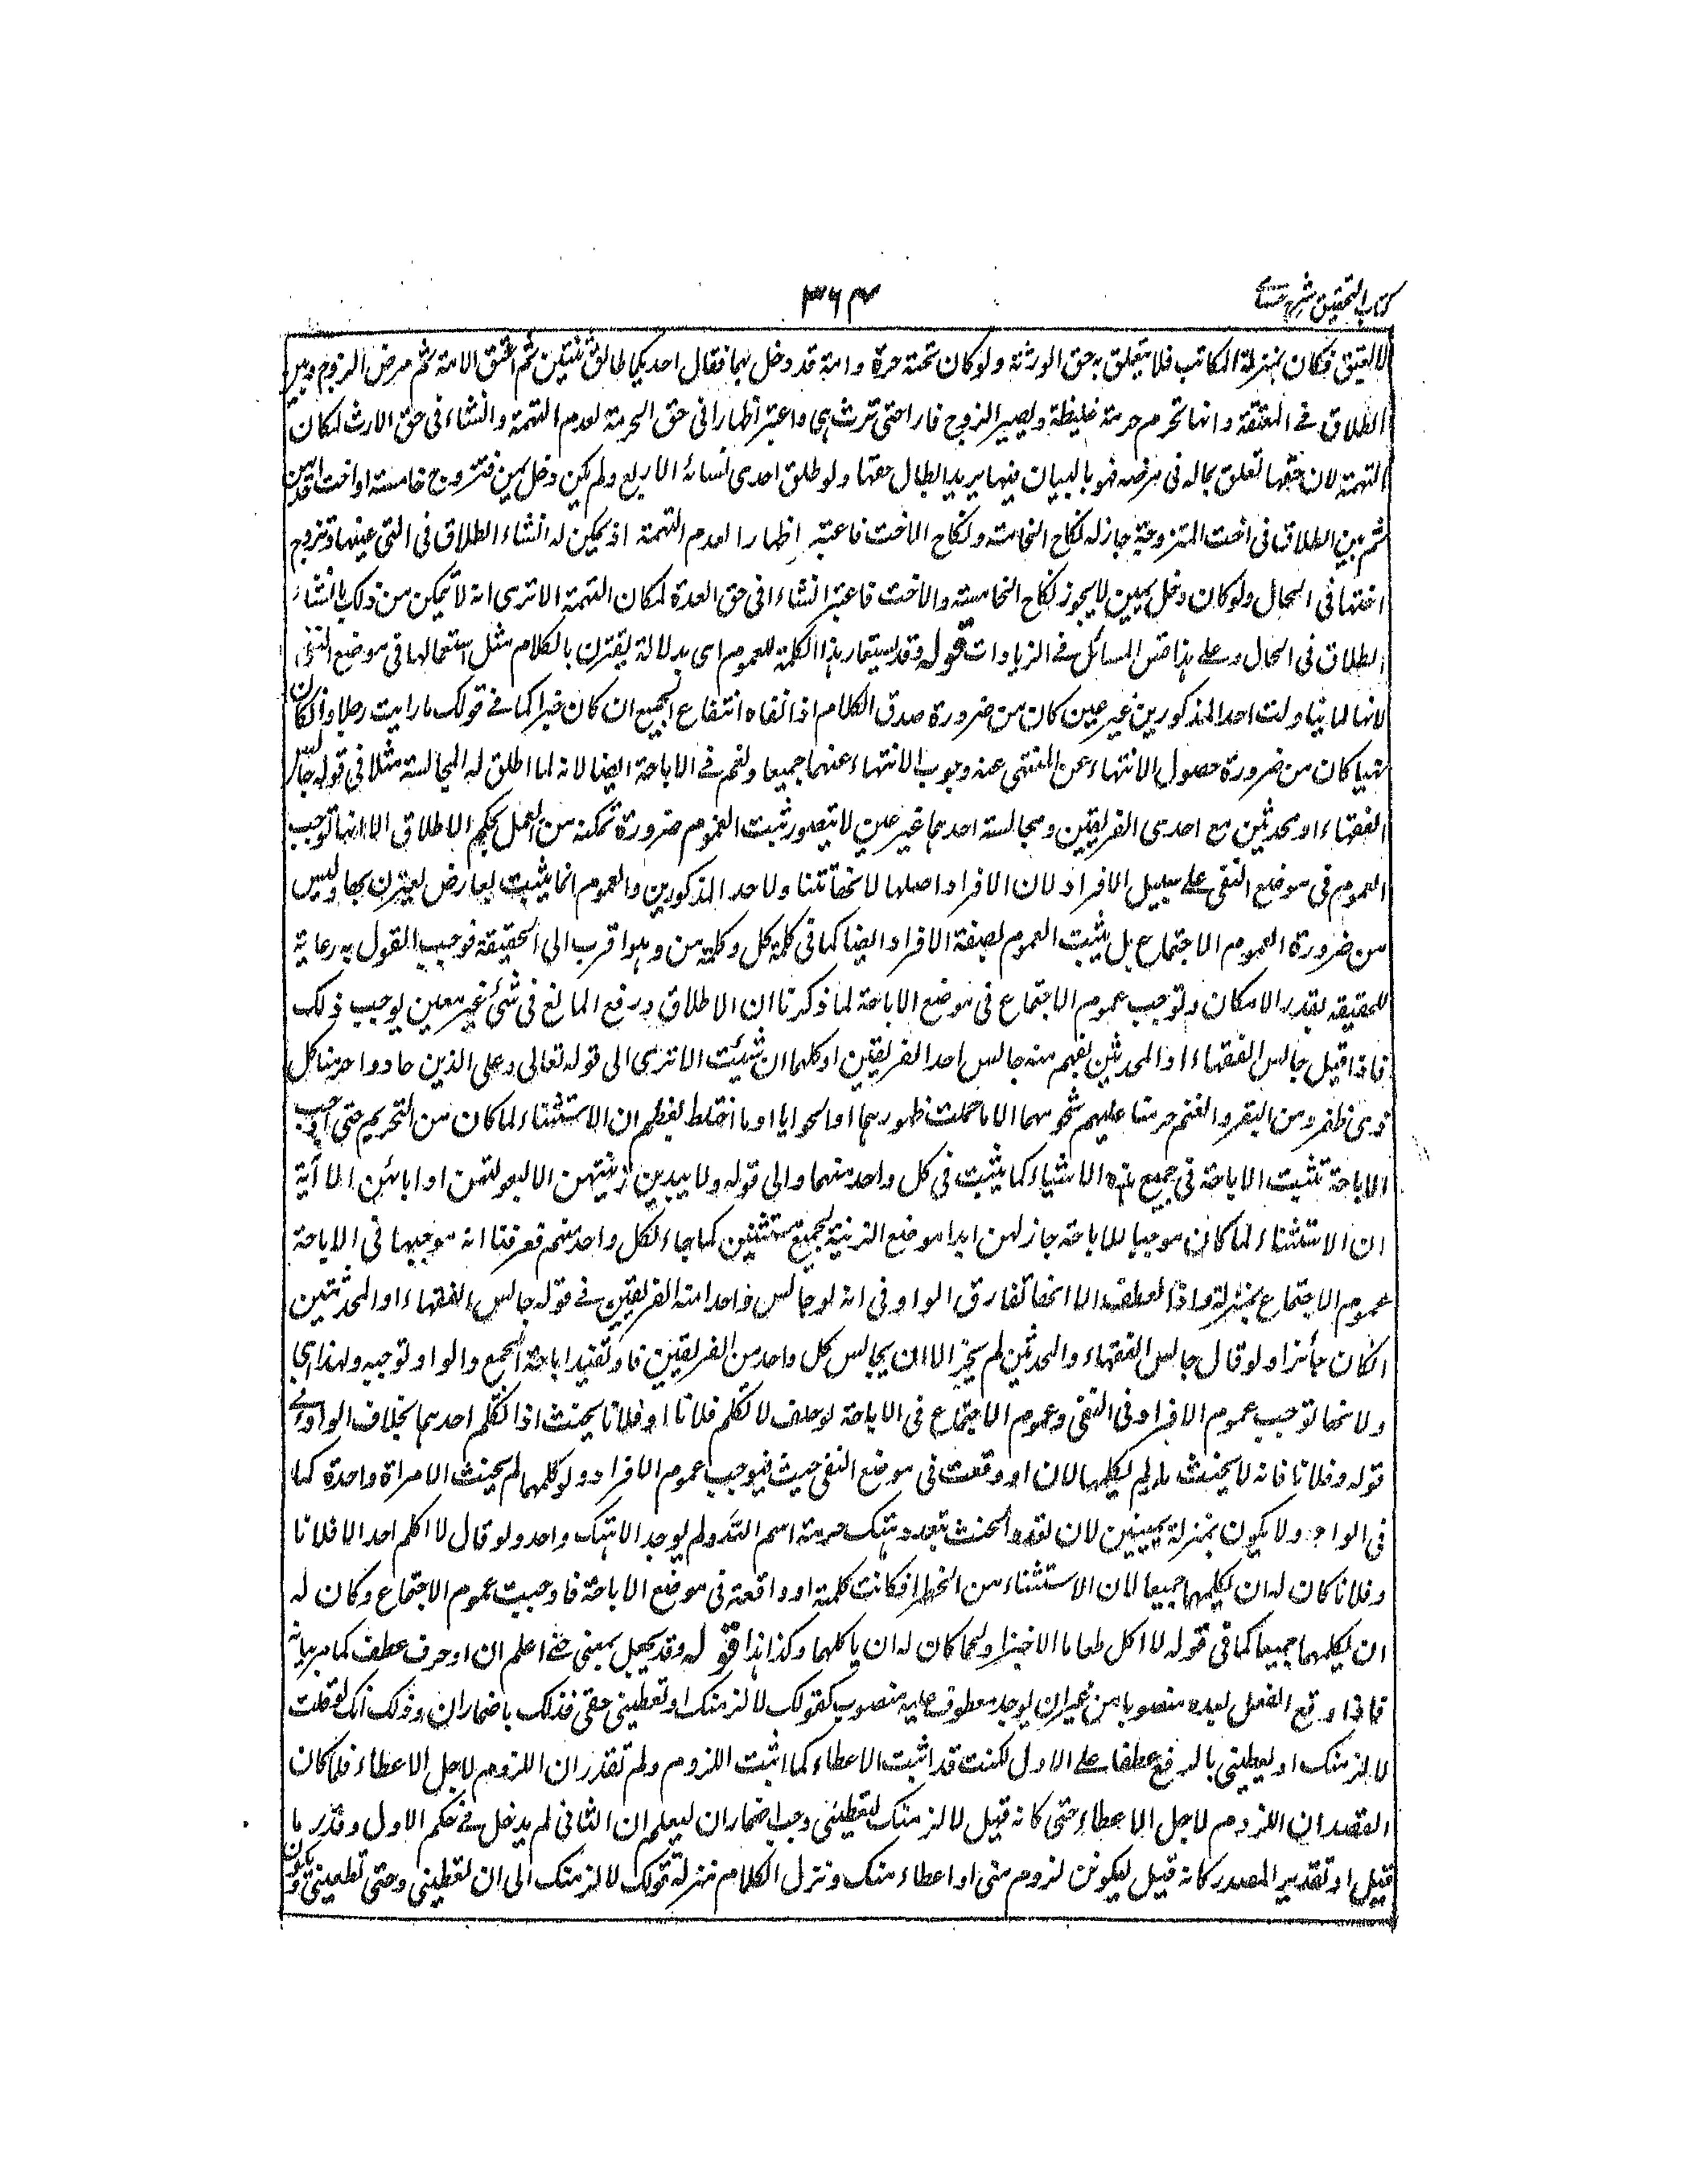 كتاب التحقيق شرح حسامى
٣٦٤
لا العتيق فكان بمنزلة المكاتب فلا يتعلق به حق الورثة ولو كان تحته حرة وامة قد دخل بهما فقال احديكما طالق ثنتين ثم اعتق الامة ثم مرض الزوج وبين
الطلاق في المعتقة وانها تحرم حرمة غليظة ويصير الزوج فارا حتى ترث هى واعتبر اظهارا فى حق الحرمة لعدم التهمة وانشاء فى حق الارث لمكان
التهمة لان حقها تعلق بماله فى مرضه فهو بالبيان فيها يريد ابطال حقها ولو طلق احدى نسائه الاربع ولم يكن دخل بهن فتزوج خامسة او اخت احديهن
ثم بين الطلاق فى اخت المتزوجة جاز له نكاح الخامسة ونكاح الاخت فاعتبر اظهارا لعدم التهمة اذ يمكن له انشاء الطلاق فى التى عينها وتزوج
اختها فى الحال ولو كان دخل بهن لا يجوز نكاح الخامسة والاخت فاعتبر انشاء فى حق العدة لمكان التهمة الا ترى انه لا يتمكن من ذلك بانشاء
الطلاق فى الحال وعلى هذا المسائل في الزيادات قوله وقد يستعار هذا الكلمة للعموم اى بدلالة يقترن بالكلام مثل استعمالها فى موضع النفى
لانها لما يتناولت احد المذكورين غير عين كان من ضرورة صدق الكلام اذ انتفاه انتفاء الجميع ان كان خبرا كما في قولك ما رايت رجلا وان كان
نهيا كان من ضرورة حصول الانتهاء عن المنهى عنه وجوب الانتهاء عنهما جميعا وتعم في الاباحة ايضا لانه لما اطلق له المجالسة مثلا فى قوله جالس
الفقهاء او محدثين مع احدى الفريقين ومجالسة احدهما غير عين لا يتصور ثبت العموم ضرورة تمكنه من العمل بحكم الاطلاق الا انها توجب
العموم فى موضع النفى على سبيل الافراد لان الافراد اصلها لانها تتناول احد المذكورين والعموم انما يثبت بعارض يقترن بها وليس
من ضرورة العموم الاجتماع بل يثبت العموم بصفة الافراد ايضا كما فى كلمة كل وكلمة من وهو اقرب الى الحقيقة فوجب القول به رعاية
للحقيقة بقدر الامكان وتوجب عموم الاجتماع فى موضع الاباحة لما ذكرنا ان الاطلاق ورفع المانع فى شئ غير معين يوجب ذلك
فاذا قيل جالس الفقهاء او المحدثين يفهم منه جالس احد الفريقين او كلهما ان شئت الا ترى الى قوله تعالى وعلى الذين هادوا حرمنا كل
ذى ظفر ومن البقر والغنم حرمنا عليهم شحومهما الا ما حملت ظهورهما او الحوايا او ما اختلط بعظم ان الاستثناء لما كان من التحريم حتى اوجب
الاباحة تثبت الاباحة فى جميع هذه الاشياء كما يثبت فى كل واحد منهما والى قوله ولا يبدين زينتهن الا لبعولتهن او ابائهن الاية
ان الاستثناء لما كان موجبا للاباحة جاز لهن ابدا موضع الزينة لجميع مستثنين كما جاء لكل واحد منهم فعرفنا ان موجبها فى الاباحة
عموم الاجتماع بمنزلة واو العطف الا انها تفارق الواو فى انه لو جالس واحدا من الفريقين في قوله جالس الفقهاء او المحدثين
كان جائزا ولو قال جالس الفقهاء والمحدثين لم يجز الا ان يجالس كل واحد من الفريقين فاو تفيد اباحة الجمع والواو توجبه ولهذا اى
ولانها توجب عموم الافراد فى النفى وعموم الاجتماع فى الاباحة لو حلف لا تكلم فلانا او فلانا يحنث اذا تكلم احدهما بخلاف الواو في
قوله وفلانا فانه لا يحنث ما لم يكلمهما لان او وقعت فى موضع النفى حيث فيوجب عموم الافراد ولو كلمهما لم يحنث الا مرة واحدة كما
فى الواو ولا يكون بمنزلة يمينين لان تعدد الحنث بتعدد هتك حرمة اسم الله ولم يوجد الا هتك واحد ولو قال لا اكلم احد الا فلانا
وفلانا كان له ان يكلمهما جميعا لان الاستثناء من الحظر فكانت كلمة او واقعة فى موضع الاباحة فاوجبت عموم الاجتماع وكان له
ان يكلمهما جميعا كما فى قوله لا اكل طعاما الا خبزا ولحما كان له ان ياكلهما وكذا هذا قوله وقد يجعل بمعنى حتى اعلم ان او حرف عطف كما مر بيانه
فاذا وقع الفعل بعده منصوبا من غير ان يوجد معطوف عليه منصوب كقولك لالزمنك او تعطينى حقى فذلك باضمار ان وذلك انك لو قلت
لالزمنك او تعطينى بالرفع عطفا على الاول لكنت قد اثبت الاعطاء كما اثبت اللزوم ولم تقدر ان اللزوم لاجل الاعطاء فلما كان
القصد ان اللزوم لاجل الاعطاء حتى كانه قيل لالزمنك لتعطينى وجب اضمار ان ليعلم ان الثانى لم يدخل في حكم الاول وقدر ما
قبل او تقدير المصدر كانه قيل ليكونن لزوم منى او اعطاء منك ونزل الكلام منزلة قولك لالزمنك الى ان تعطينى وحتى تعطينى ويكون